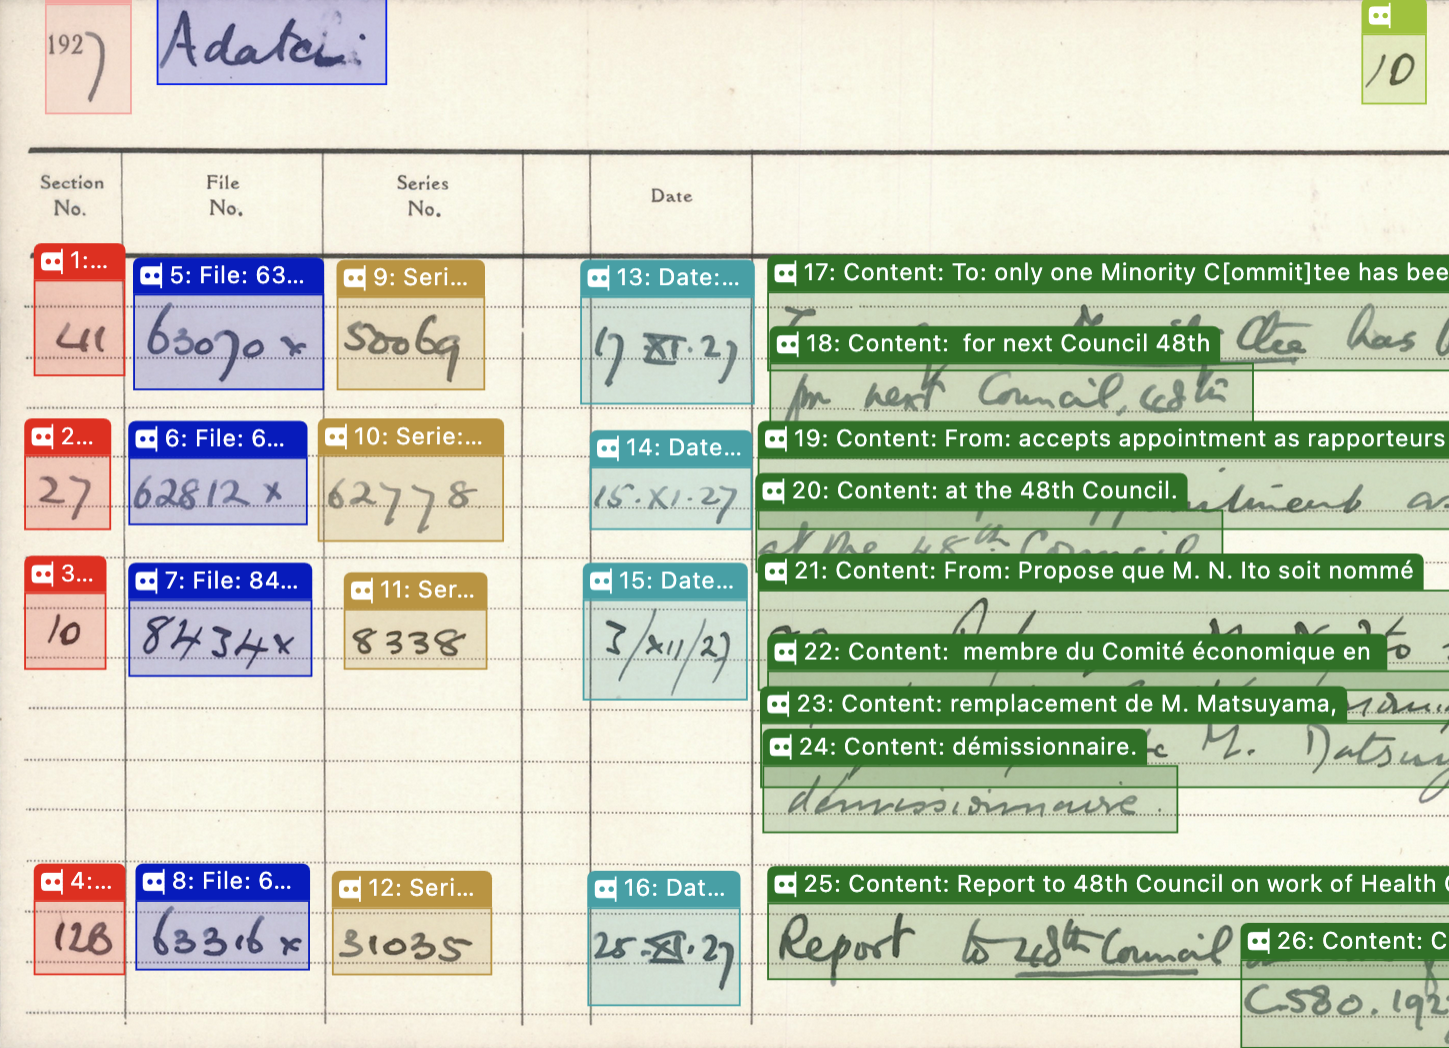 1927 Adatci 10
Section No. File No. Series No. Date
1:... 5: File: 63... 9: Seri... 13: Date:... 17: Content: To: only one Minority C[ommit]tee has bee
41 63070 x 50069 17 XI. 27 Ctee has
18: Content: for next Council 48th
for next Council, 48th
2... 6: File: 6... 10: Serie:... 14: Date... 19: Content: From: accepts appointment as rapporteurs
27 62812 x 62778 15.XI.27
20: Content: at the 48th Council.
at the 48th Council
3... 7: File: 84... 11: Ser... 15: Date... 21: Content: From: Propose que M. N. Ito soit nommé
10 8434x 8338 3/XII/27
22: Content: membre du Comité économique en
23: Content: remplacement de M. Matsuyama,
M. Matsuy
24: Content: démissionnaire.
démissionnaire.
4:... 8: File: 6... 12: Seri... 16: Dat... 25: Content: Report to 48th Council on work of Health
128 63316 x 31035 25.XI.27 Report to 48th Council
26: Content: C
C.580.192